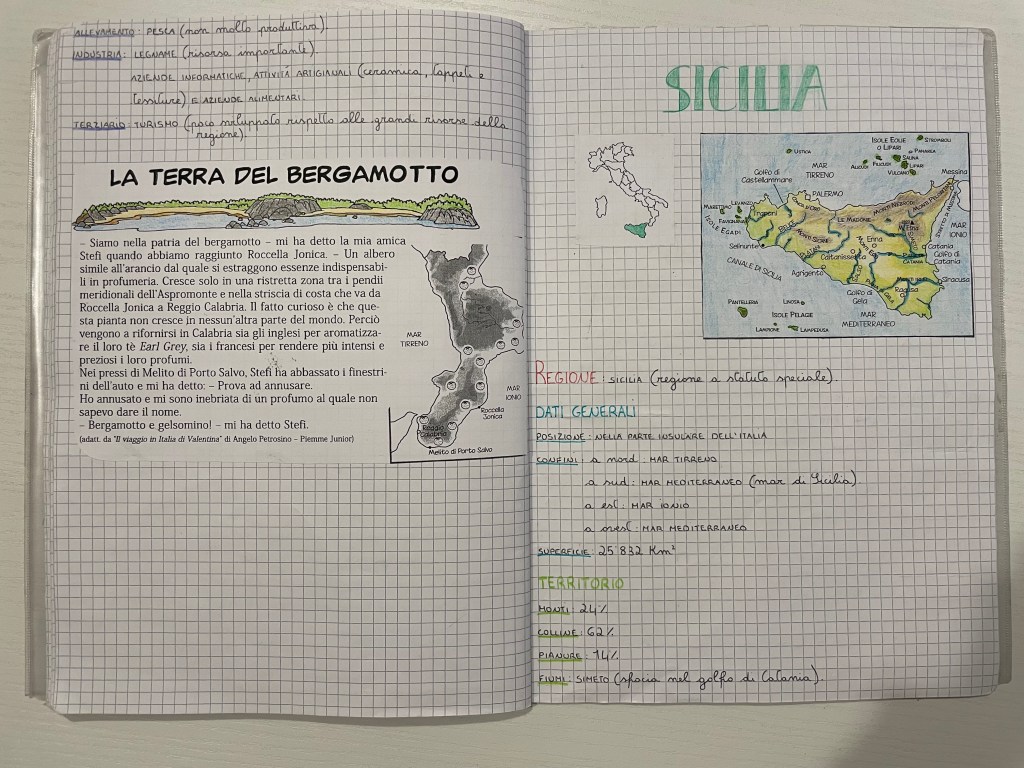 ALLEVAMENTO: PESCA (non molto produttiva).
INDUSTRIA: LEGNAME (risorsa importante).
AZIENDE INFORMATICHE, ATTIVITÁ ARTIGIANALI (ceramica, tappeti e
tessiture) E AZIENDE ALIMENTARI.
TERZIARIO: TURISMO (poco sviluppato rispetto alle grandi risorse della
regione).
LA TERRA DEL BERGAMOTTO
– Siamo nella patria del bergamotto – mi ha detto la mia amica
Stefi quando abbiamo raggiunto Roccella Jonica. – Un albero
simile all'arancio dal quale si estraggono essenze indispensabi-
li in profumeria. Cresce solo in una ristretta zona tra i pendii
meridionali dell'Aspromonte e nella striscia di costa che va da
Roccella Jonica a Reggio Calabria. Il fatto curioso è che que-
sta pianta non cresce in nessun'altra parte del mondo. Perciò
vengono a rifornirsi in Calabria sia gli inglesi per aromatizza-
re il loro tè Earl Grey, sia i francesi per rendere più intensi e
preziosi i loro profumi.
Nei pressi di Melito di Porto Salvo, Stefi ha abbassato i finestri-
ni dell'auto e mi ha detto: – Prova ad annusare.
Ho annusato e mi sono inebriata di un profumo al quale non
sapevo dare il nome.
– Bergamotto e gelsomino! – mi ha detto Stefi.
(adatt. da "Il viaggio in Italia di Valentina" di Angelo Petrosino – Piemme Junior)
MAR
TIRRENO
MAR
IONIO
Roccella
Jonica
Reggio
Calabria
Melito di Porto Salvo
SICILIA
ISOLE EOLIE
O LIPARI
STROMBOLI
PANAREA
SALINA
LIPARI
VULCANO
ALICUDI
FILICUDI
USTICA
MAR
TIRRENO
Messina
Golfo di
Castellammare
PALERMO
LEVANZO
MARETTIMO
FAVIGNANA
ISOLE EGADI
Trapani
LE MADONIE
MONTI NEBRODI
MONTI PELORITANI
STRETTO DI MESSINA
M. Etna
MAR
IONIO
Selinunte
MONTI SICANI
Enna
Catania
Golfo di
Catania
Caltanissetta
Agrigento
CANALE DI SICILIA
Siracusa
Ragusa
Golfo di
Gela
PANTELLERIA
LINOSA
ISOLE PELAGIE
LAMPIONE
LAMPEDUSA
MAR
MEDITERRANEO
REGIONE: SICILIA (regione a statuto speciale).
DATI GENERALI
POSIZIONE: NELLA PARTE INSULARE DELL'ITALIA
CONFINI: a nord: MAR TIRRENO
a sud: MAR MEDITERRANEO (mar di Sicilia)
a est: MAR IONIO
a ovest: MAR MEDITERRANEO
SUPERFICIE: 25 832 Km²
TERRITORIO
MONTI: 24%
COLLINE: 62%
PIANURE: 14%
FIUMI: SIMETO (sfocia nel golfo di Catania).